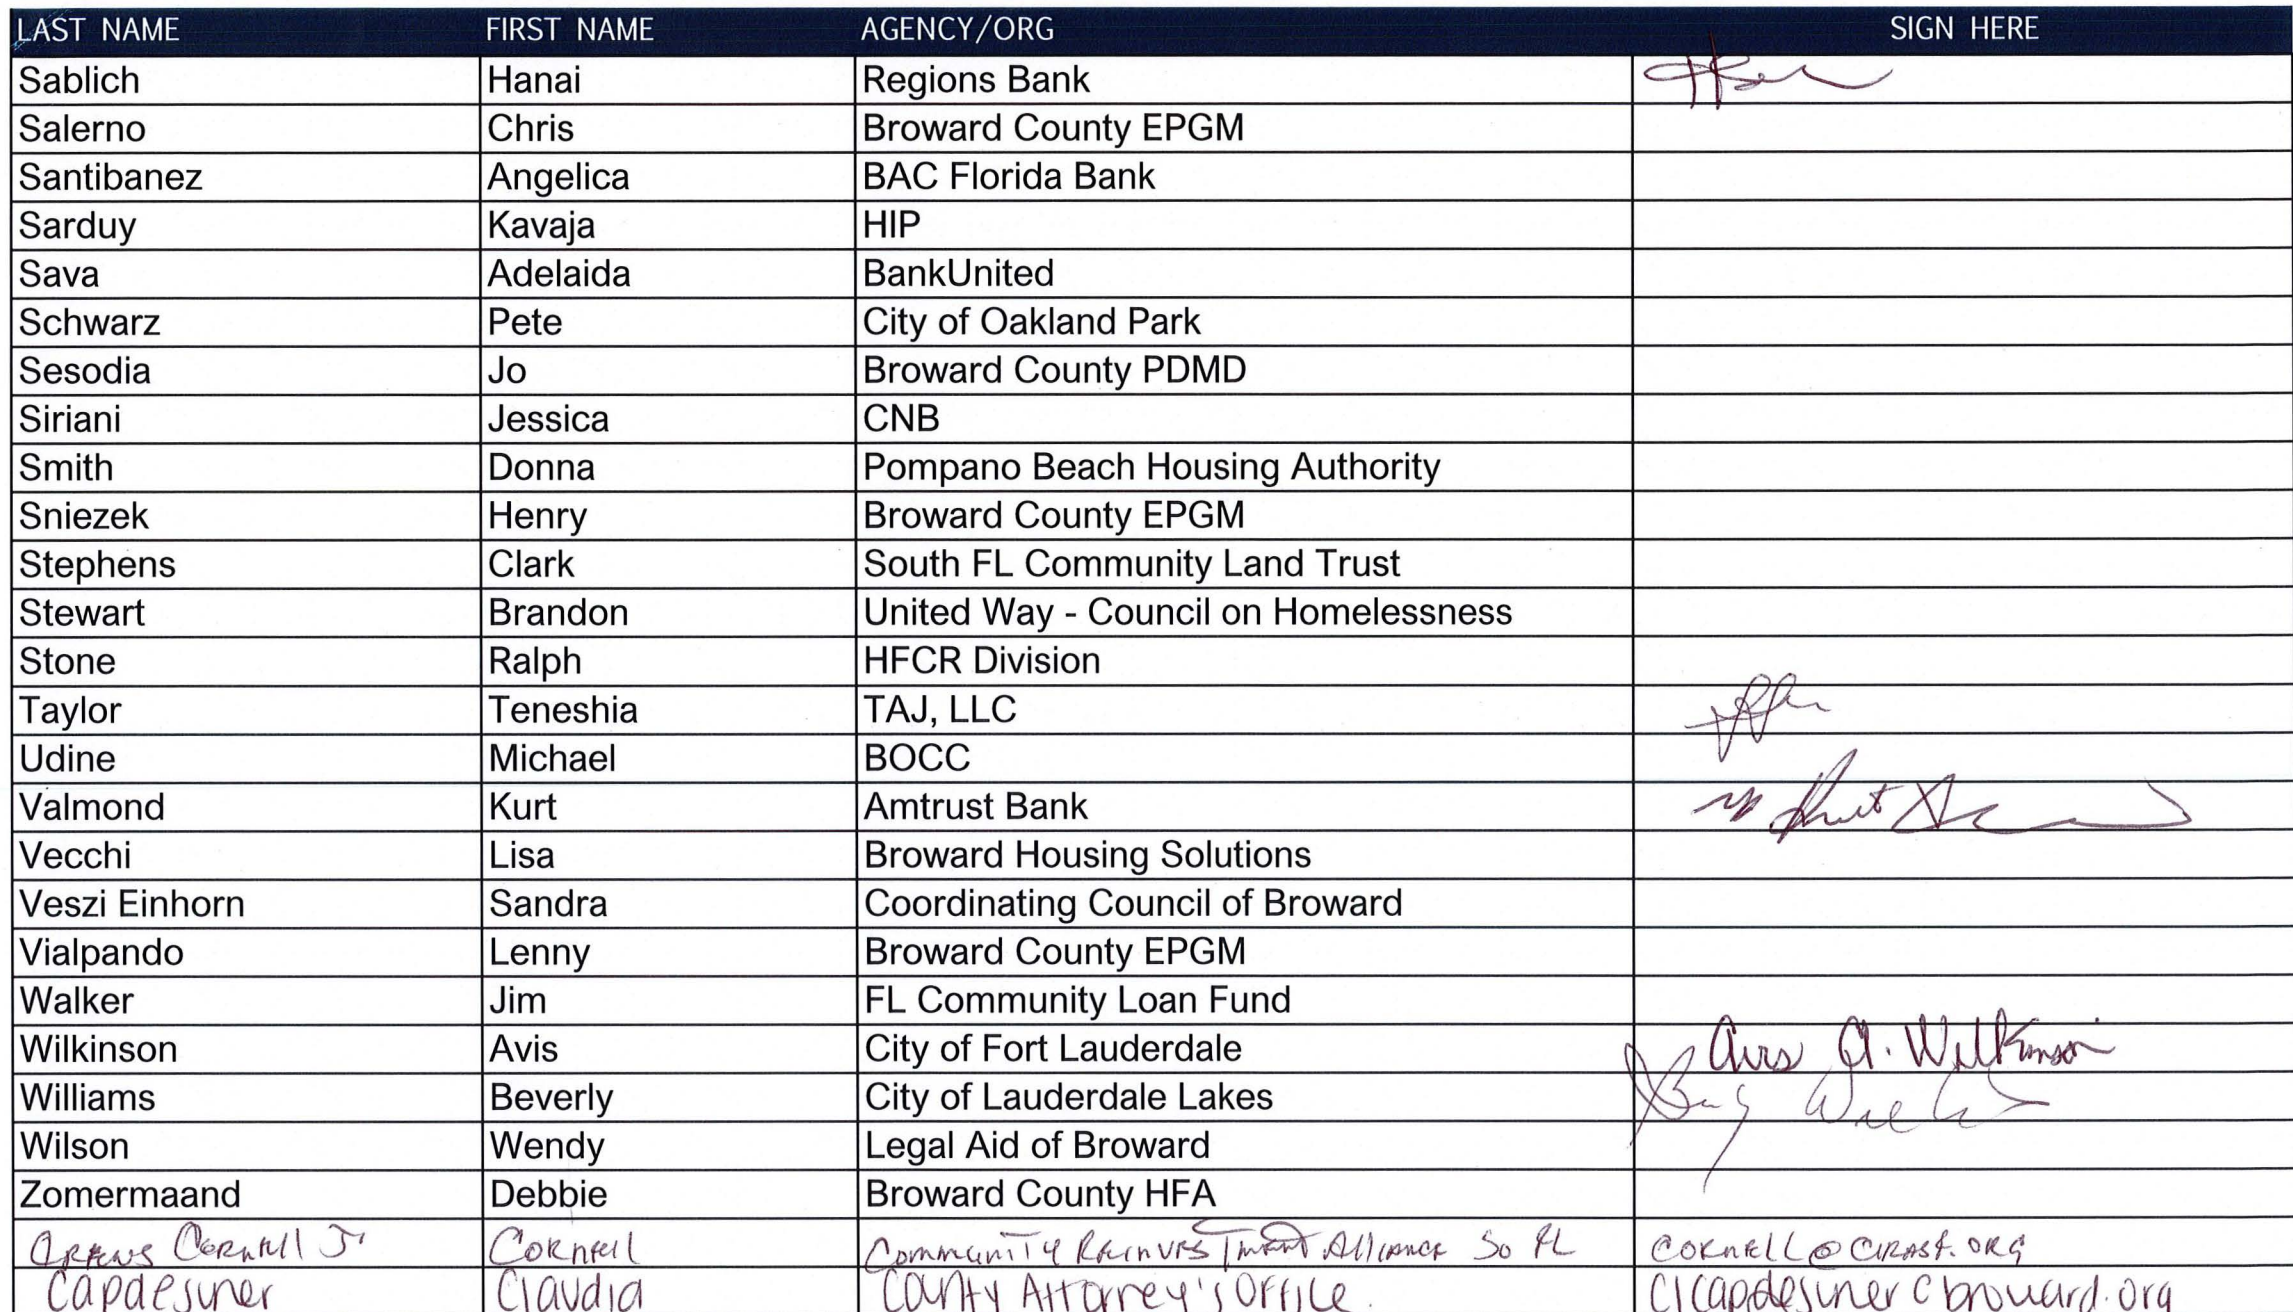 LAST NAME FIRST NAME AGENCY/ORG SIGN HERE
Sablich Hanai Regions Bank
Salerno Chris Broward County EPGM
Santibanez Angelica BAC Florida Bank
Sarduy Kavaja HIP
Sava Adelaida BankUnited
Schwarz Pete City of Oakland Park
Sesodia Jo Broward County PDMD
Siriani Jessica CNB
Smith Donna Pompano Beach Housing Authority
Sniezek Henry Broward County EPGM
Stephens Clark South FL Community Land Trust
Stewart Brandon United Way - Council on Homelessness
Stone Ralph HFCR Division
Taylor Teneshia TAJ, LLC
Udine Michael BOCC
Valmond Kurt Amtrust Bank
Vecchi Lisa Broward Housing Solutions
Veszi Einhorn Sandra Coordinating Council of Broward
Vialpando Lenny Broward County EPGM
Walker Jim FL Community Loan Fund
Wilkinson Avis City of Fort Lauderdale Avis A. Wilkinson
Williams Beverly City of Lauderdale Lakes
Wilson Wendy Legal Aid of Broward
Zomermaand Debbie Broward County HFA
Cornell Jr Cornell Community Reinvestment Alliance So FL
Claudia County Attorney's Office